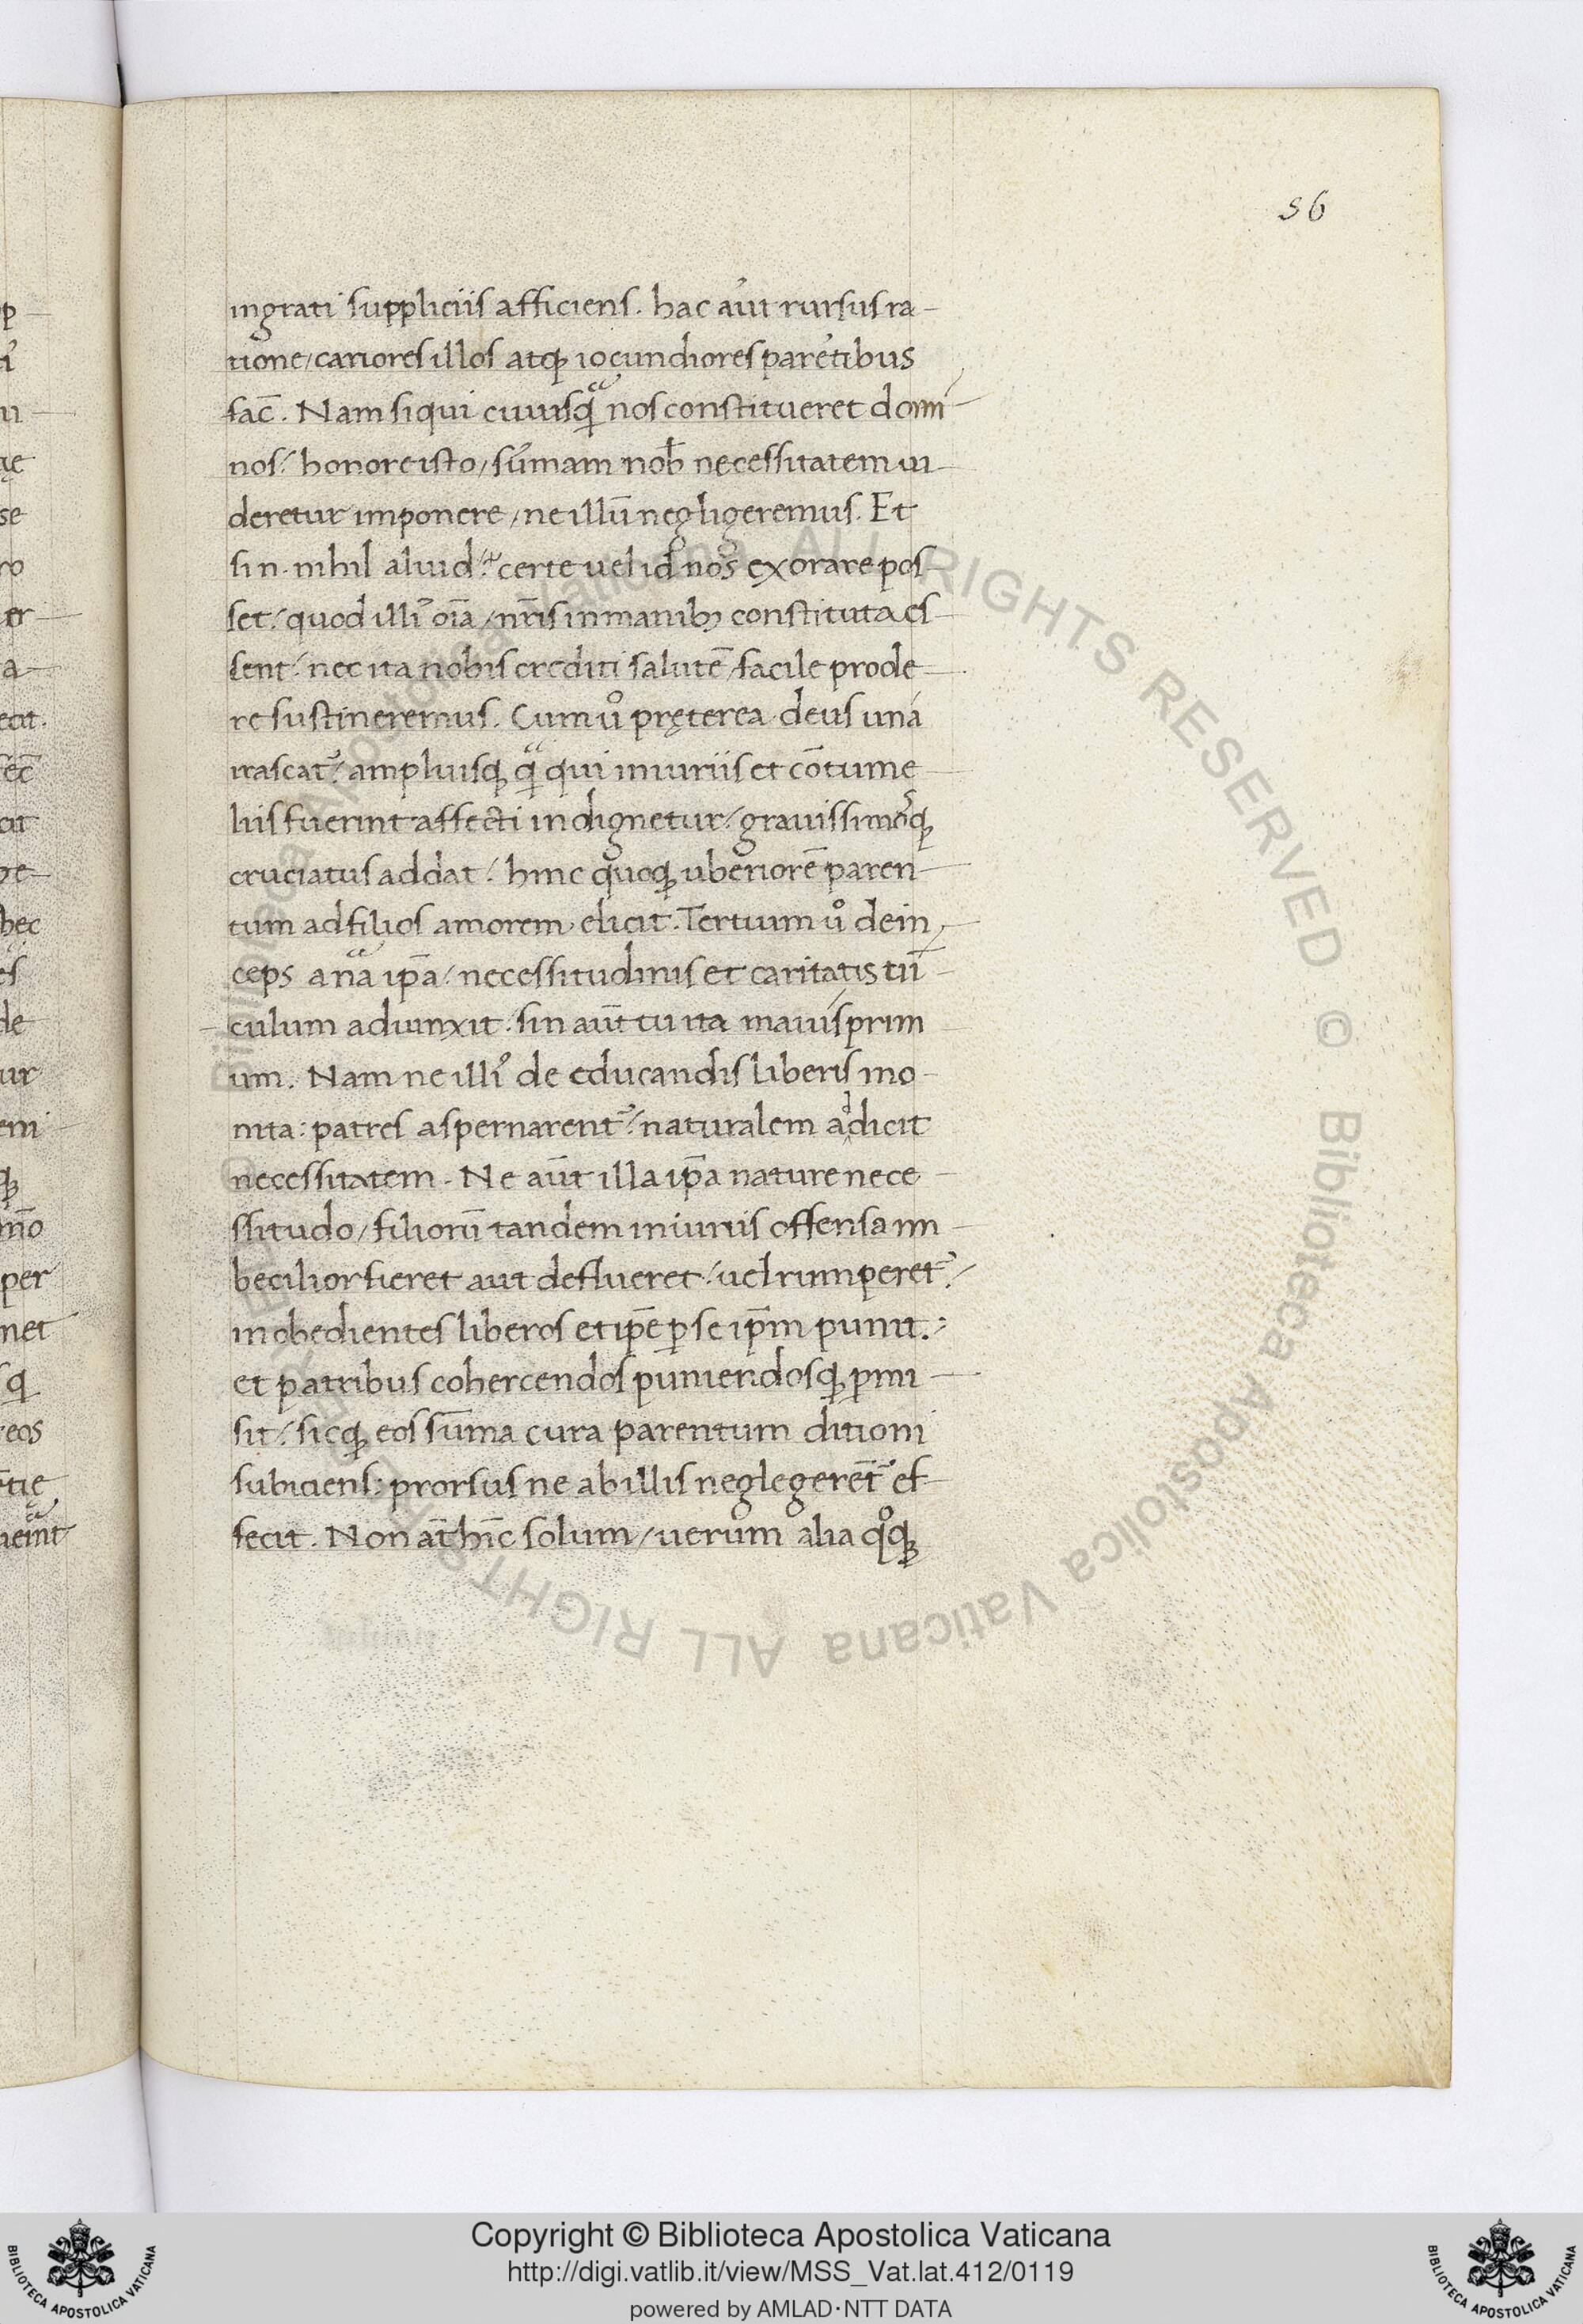 56
ingrati suppliciis afficiens. hac aūt rursus ra-
tione/cariores illos atqꝫ iocundiores parẽtibus
fac̄. Nam siqui cuiusꝗ nos constitueret domi-
nos/ honore isto/ sūmam nob̄ necessitatem ui-
deretur imponere/ ne illū negligeremus. Et
si n. nihil aliud/ certe uel id nos exorare pos-
set/ quod illi oīa/ nr̄is in manibꝫ constituta es-
sent/ nec ita nobis crediti salutē/ facile prode-
re sustineremus. Cum uͦ pręterea deus una
irascat᷑/ ampliusqꝫ ꝗ qui iniuriis et cōtume-
liis fuerint affecti indignetur/ grauissimosqꝫ
cruciatus addat/ hinc quoqꝫ uberiorē paren-
tum ad filios amorem elicit. Tertium uͦ dein-
ceps a na ip̄a/ necessitudinis et caritatis
culum adiunxit. sin aūt tu ita mauis prim
um. Nam ne illi de educandis liberis mo-
nita: patres aspernarent᷑/ naturalem adicit
necessitatem. Ne aūt illa ip̄a nature nece-
ssitudo/ filiorū tandem iniuriis offensa im-
becilior fieret aut deflueret/ uel rumperet᷑/
inobedientes liberos et ip̄e ꝑ se ip̄m punit:
et patribus cohercendos puniendosqꝫ ꝑmi-
sit/ sicqꝫ eos sūma cura parentum ditioni
subiciens: prorsus ne ab illis neglegerēt᷑ ef-
fecit. Non āt hīc solum/ uerum alia qͦqꝫ
Copyright © Biblioteca Apostolica Vaticana
http://digi.vatlib.it/view/MSS_Vat.lat.412/0119
powered by AMLAD·NTT DATA
BIBLIOTECA APOSTOLICA VATICANA
BIBLIOTECA APOSTOLICA VATICANA